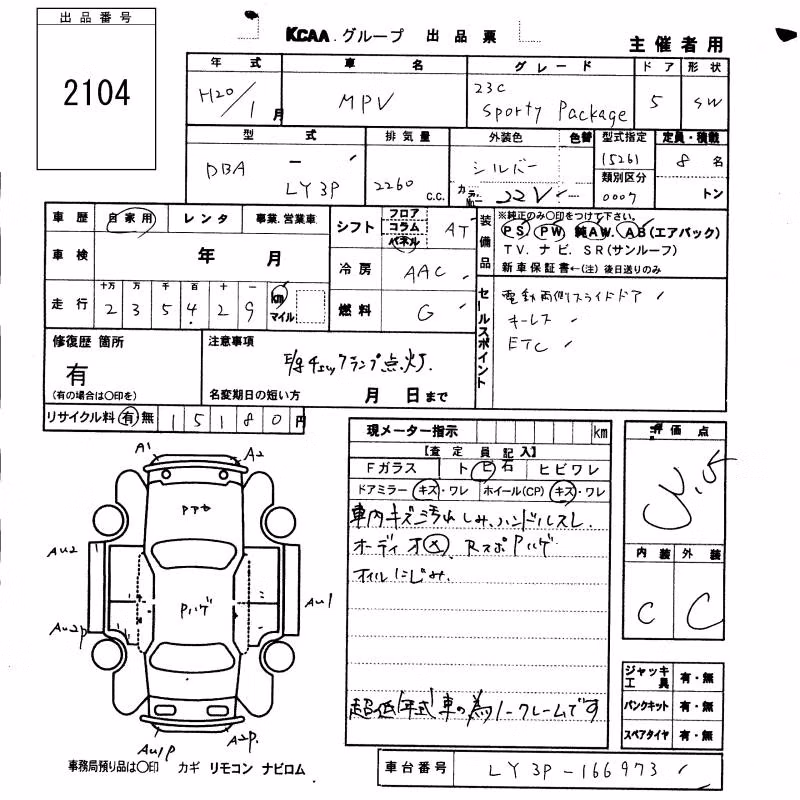 出品番号
2104
KCAA.グループ 出品票
主催者用
年式 車名 グレード ドア 形状
H20/1月 MPV 23C Sporty Package 5 SW
型式 排気量 外装色 色替 型式指定 定員・積載
DBA - LY3P 2260 c.c. シルバー 15261 8名
カラーNo. 22V 類別区分 0007 トン
車歴 自家用 レンタ 事業.営業車
シフト フロア コラム パネル AT
装備品 ※純正のみ〇印をつけて下さい。
PS PW 純AW. AB(エアバック)
TV. ナビ. SR(サンルーフ)
新車保証書←(注)後日送りのみ
車検 年 月
冷房 AAC
走行 十万 万 千 百 十 一
2 3 5 4 2 9 km マイル
燃料 G
セールスポイント
電動両側スライドドア
キーレス
ETC
修復歴 箇所
有
(有の場合は〇印を)
注意事項
E/gチェックランプ点灯.
名変期日の短い方 月 日まで
リサイクル料 有 無 15180円
現メーター指示 km
【査定員記入】
Fガラス ト ビ 石 ヒビワレ
ドアミラー キズ・ワレ ホイール(CP) キズ・ワレ
車内キズ汚れしみ、ハンドルスレ.
オーディオ× RスポPハゲ
オイルにじみ.
超低年式車の為ノークレームです
評価点
内装 外装
C C
ジャッキ工具 有・無
パンクキット 有・無
スペアタイヤ 有・無
A1 A2
Pアセ
AU2
Pハゲ
AU1
AU2P
AU1P A2P.
事務局預り品は〇印 カギ リモコン ナビロム
車台番号 LY3P-166973